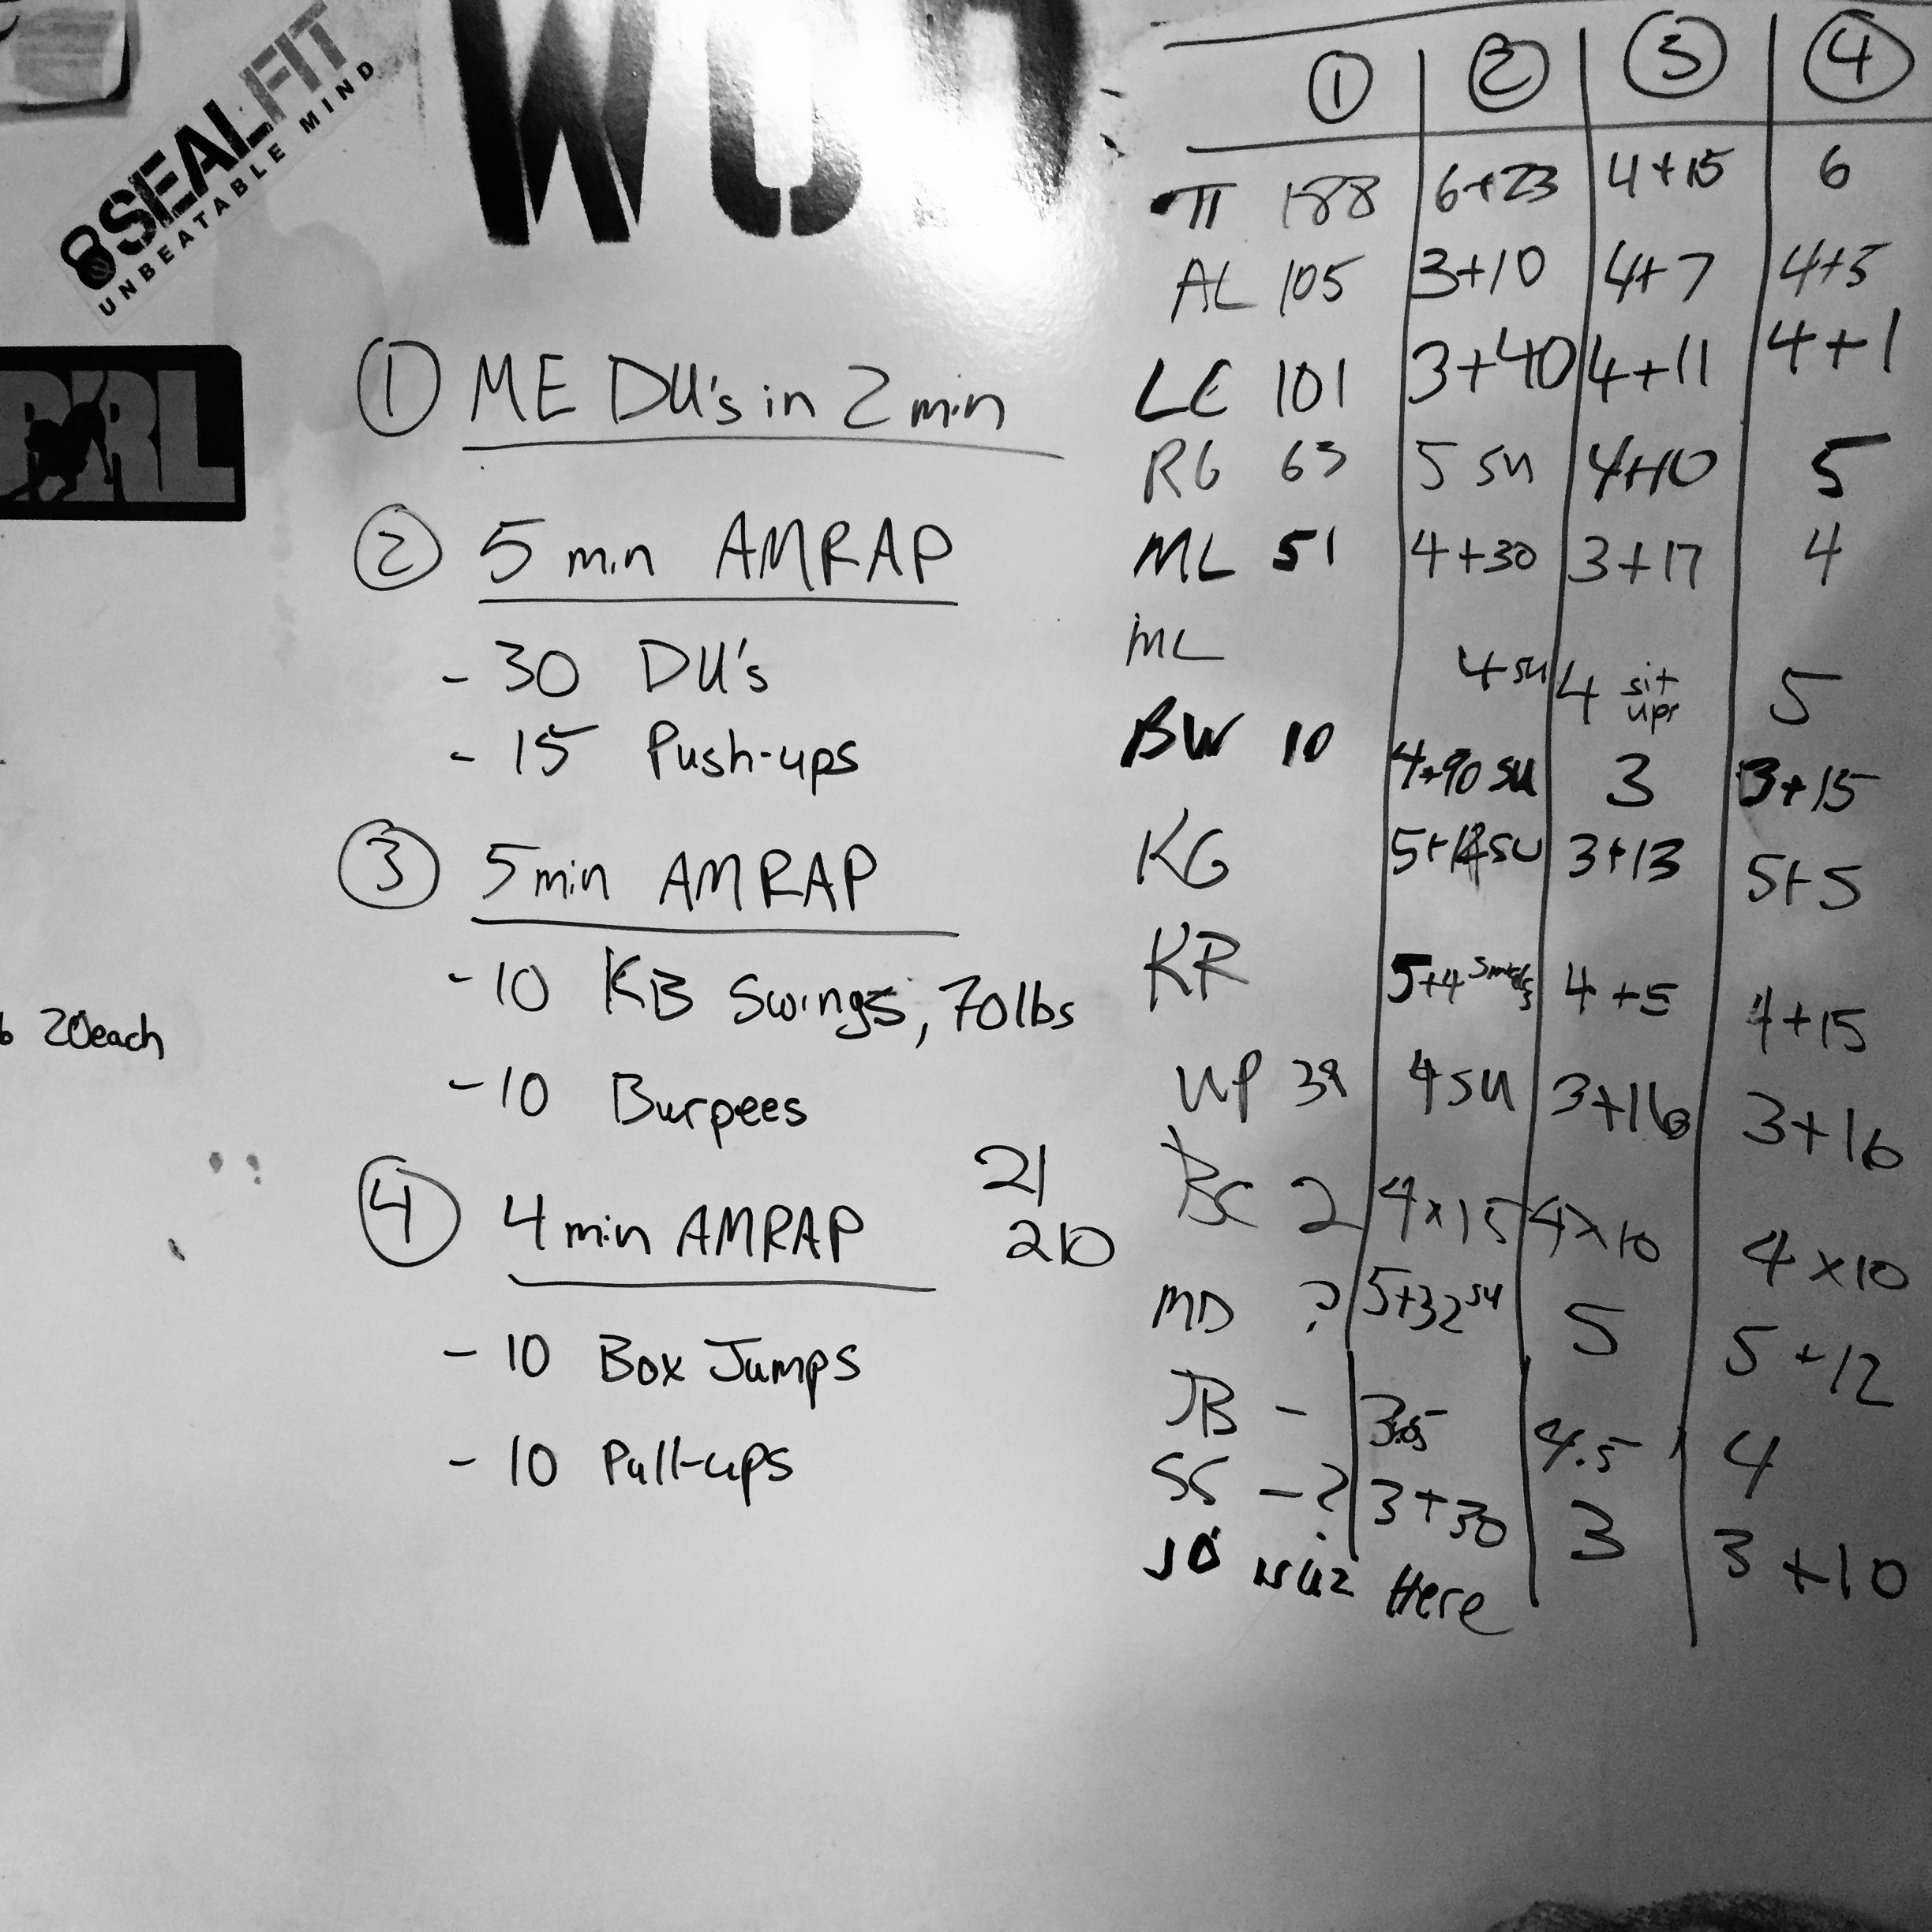 SEALFIT
UNBEATABLE MIND
WOD
PRL
① ME DU's in 2 min
② 5 min AMRAP
- 30 DU's
- 15 Push-ups
③ 5 min AMRAP
- 10 KB Swings, 70 lbs
- 10 Burpees
④ 4 min AMRAP
- 10 Box Jumps
- 10 Pull-ups
20each
21
210
① ② ③ ④
TT 188 6+23 4+15 6
AL 105 3+10 4+7 4+5
LE 101 3+40 4+11 4+1
RG 63 5 SU 4+10 5
ML 51 4+30 3+17 4
ML 4 SU 4 sit ups 5
BW 10 4+90 SU 3 3+15
KG SU 3+13 5+5
KR 5+4 singles 4+5 4+15
UP 39 4 SU 3+16 3+16
BC 2 4x15 4x10 4x10
MD ? 5+32 SU 5 5+12
JB - 4.5 4
SS -? 3+30 3 3+10
Here